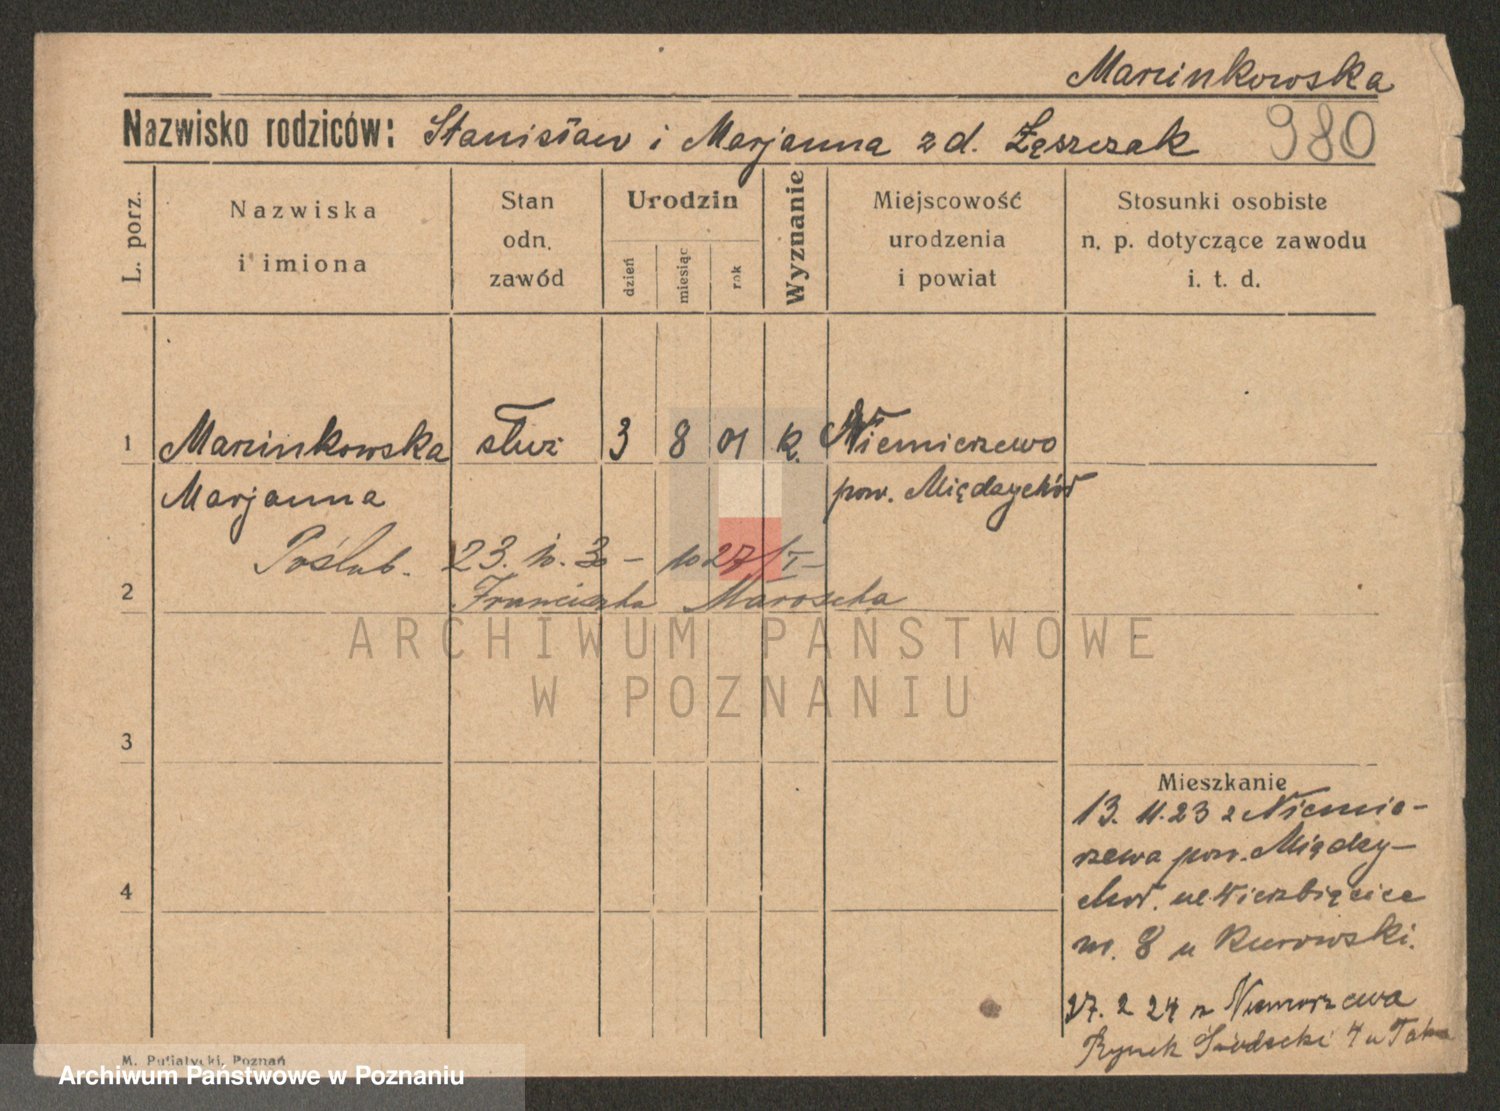 Marcinkowska
Nazwisko rodziców: Stanisław i Marjanna z d. Łęszczak 980
L. porz.
Nazwiska
i imiona
Stan
odn.
zawód
Urodzin
dzień
miesiąc
rok
Wyznanie
Miejscowość
urodzenia
i powiat
Stosunki osobiste
n. p. dotyczące zawodu
i. t. d.
1 Marcinkowska służ 3 8 01 k. Niemierzewo
Marjanna pow. Międzychód
Poślub. 23. 10. 30 – 27/I –
2 Franciszka
ARCHIWUM PAŃSTWOWE
W POZNANIU
3
Mieszkanie
13. 11. 23 z Niemie-
rzewa pow. Między-
chod. ul. Wierzbięcice
m. 8 u Kurowski.
4
27. 2 24 z Niemierzewa
Rynek Śródecki 4 u
M. Putiatycki, Poznań
Archiwum Państwowe w Poznaniu